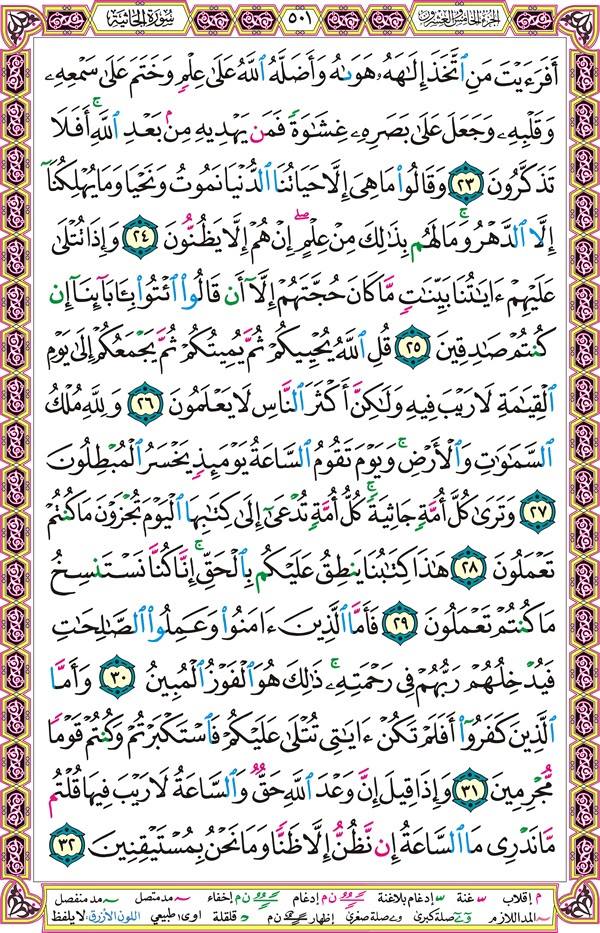 الجزء الخامس والعشرون
٥٠١
سورة الجاثية
أَفَرَءَيۡتَ مَنِ ٱتَّخَذَ إِلَٰهَهُۥ هَوَىٰهُ وَأَضَلَّهُ ٱللَّهُ عَلَىٰ عِلۡمٖ وَخَتَمَ عَلَىٰ سَمۡعِهِۦ
وَقَلۡبِهِۦ وَجَعَلَ عَلَىٰ بَصَرِهِۦ غِشَٰوَةٗ فَمَن يَهۡدِيهِ مِنۢ بَعۡدِ ٱللَّهِۚ أَفَلَا
تَذَكَّرُونَ ٢٣ وَقَالُواْ مَا هِيَ إِلَّا حَيَاتُنَا ٱلدُّنۡيَا نَمُوتُ وَنَحۡيَا وَمَا يُهۡلِكُنَآ
إِلَّا ٱلدَّهۡرُۚ وَمَا لَهُم بِذَٰلِكَ مِنۡ عِلۡمٍۖ إِنۡ هُمۡ إِلَّا يَظُنُّونَ ٢٤ وَإِذَا تُتۡلَىٰ
عَلَيۡهِمۡ ءَايَٰتُنَا بَيِّنَٰتٖ مَّا كَانَ حُجَّتَهُمۡ إِلَّآ أَن قَالُواْ ٱئۡتُواْ بِـَٔابَآئِنَآ إِن
كُنتُمۡ صَٰدِقِينَ ٢٥ قُلِ ٱللَّهُ يُحۡيِيكُمۡ ثُمَّ يُمِيتُكُمۡ ثُمَّ يَجۡمَعُكُمۡ إِلَىٰ يَوۡمِ
ٱلۡقِيَٰمَةِ لَا رَيۡبَ فِيهِ وَلَٰكِنَّ أَكۡثَرَ ٱلنَّاسِ لَا يَعۡلَمُونَ ٢٦ وَلِلَّهِ مُلۡكُ
ٱلسَّمَٰوَٰتِ وَٱلۡأَرۡضِۚ وَيَوۡمَ تَقُومُ ٱلسَّاعَةُ يَوۡمَئِذٖ يَخۡسَرُ ٱلۡمُبۡطِلُونَ
٢٧ وَتَرَىٰ كُلَّ أُمَّةٖ جَاثِيَةٗۚ كُلُّ أُمَّةٖ تُدۡعَىٰٓ إِلَىٰ كِتَٰبِهَا ٱلۡيَوۡمَ تُجۡزَوۡنَ مَا كُنتُمۡ
تَعۡمَلُونَ ٢٨ هَٰذَا كِتَٰبُنَا يَنطِقُ عَلَيۡكُم بِٱلۡحَقِّۚ إِنَّا كُنَّا نَسۡتَنسِخُ
مَا كُنتُمۡ تَعۡمَلُونَ ٢٩ فَأَمَّا ٱلَّذِينَ ءَامَنُواْ وَعَمِلُواْ ٱلصَّٰلِحَٰتِ
فَيُدۡخِلُهُمۡ رَبُّهُمۡ فِي رَحۡمَتِهِۦۚ ذَٰلِكَ هُوَ ٱلۡفَوۡزُ ٱلۡمُبِينُ ٣٠ وَأَمَّا
ٱلَّذِينَ كَفَرُوٓاْ أَفَلَمۡ تَكُنۡ ءَايَٰتِي تُتۡلَىٰ عَلَيۡكُمۡ فَٱسۡتَكۡبَرۡتُمۡ وَكُنتُمۡ قَوۡمٗا
مُّجۡرِمِينَ ٣١ وَإِذَا قِيلَ إِنَّ وَعۡدَ ٱللَّهِ حَقّٞ وَٱلسَّاعَةُ لَا رَيۡبَ فِيهَا قُلۡتُم
مَّا نَدۡرِي مَا ٱلسَّاعَةُ إِن نَّظُنُّ إِلَّا ظَنّٗا وَمَا نَحۡنُ بِمُسۡتَيۡقِنِينَ ٣٢
م إقلاب غنة إدغام بلاغنة ن م إدغام ن م إخفاء مد متصل مد منفصل
المد اللازم صلة كبرى صلة صغرى إظهار ن م قلقلة اوى طبيعي اللون الأزرق: لا يلفظ